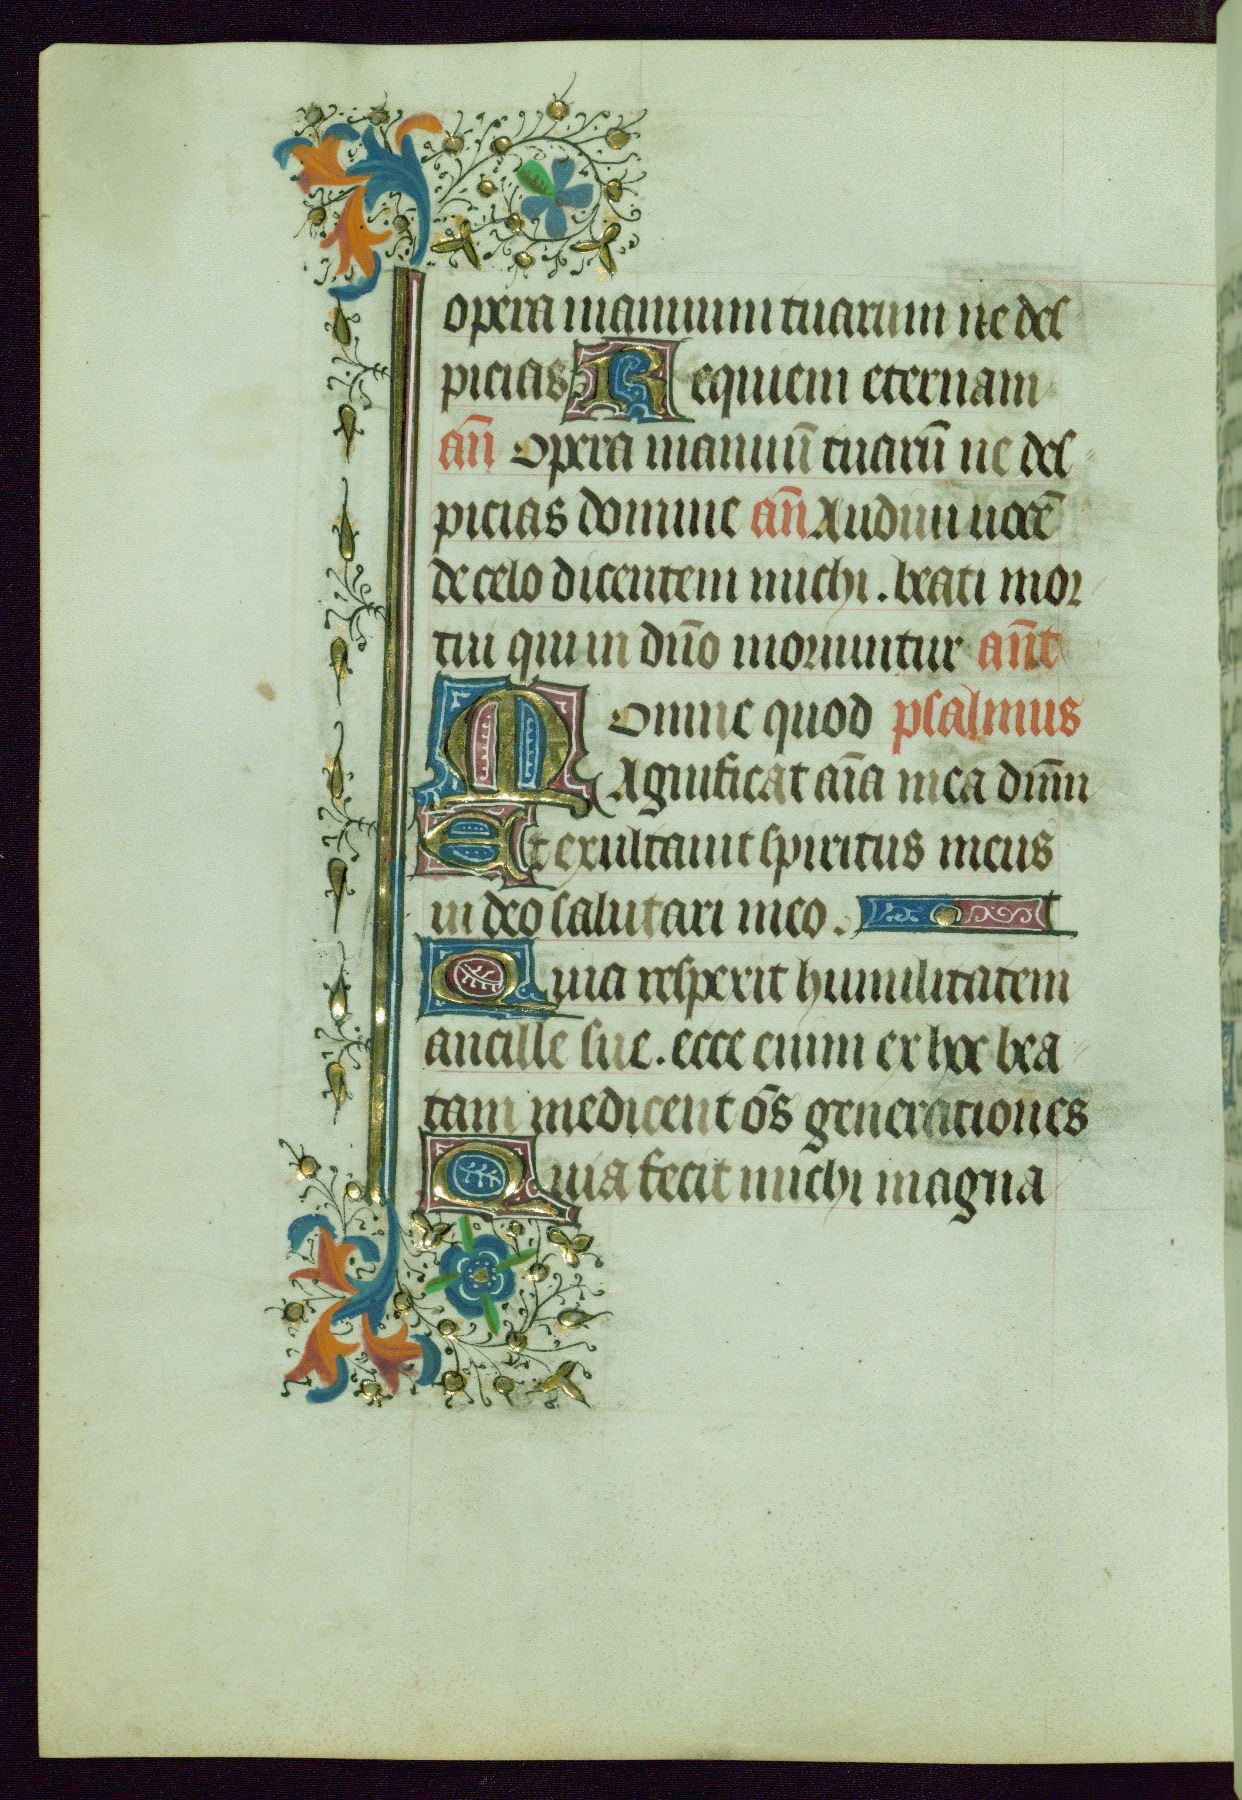 opera manuum tuarum ne des
picias Requiem eternam
an̄ Opera manuū tuarū ne des
picias domine an̄ Audiui uocē
de celo dicentem michi . beati mor
tui qui in dn̄o moriuntur an̄t
Omne quod psalmus
MAgnificat aīa mea dn̄m
Et exultauit spiritus meus
in deo salutari meo .
Quia respexit humilitatem
ancille sue . ecce enim ex hoc bea
tam me dicent ōs generationes
Quia fecit michi magna